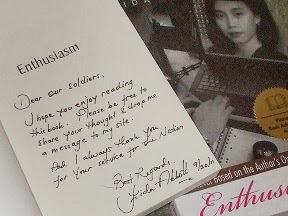 Enthusiasm
Dear our soldiers,
I hope you enjoy reading
this book. Please be free to
share your thought & drop me
a message to my site.
And I always thank you
for your service for the Nation
Best Regards.
Based on the Author's
Enthusi